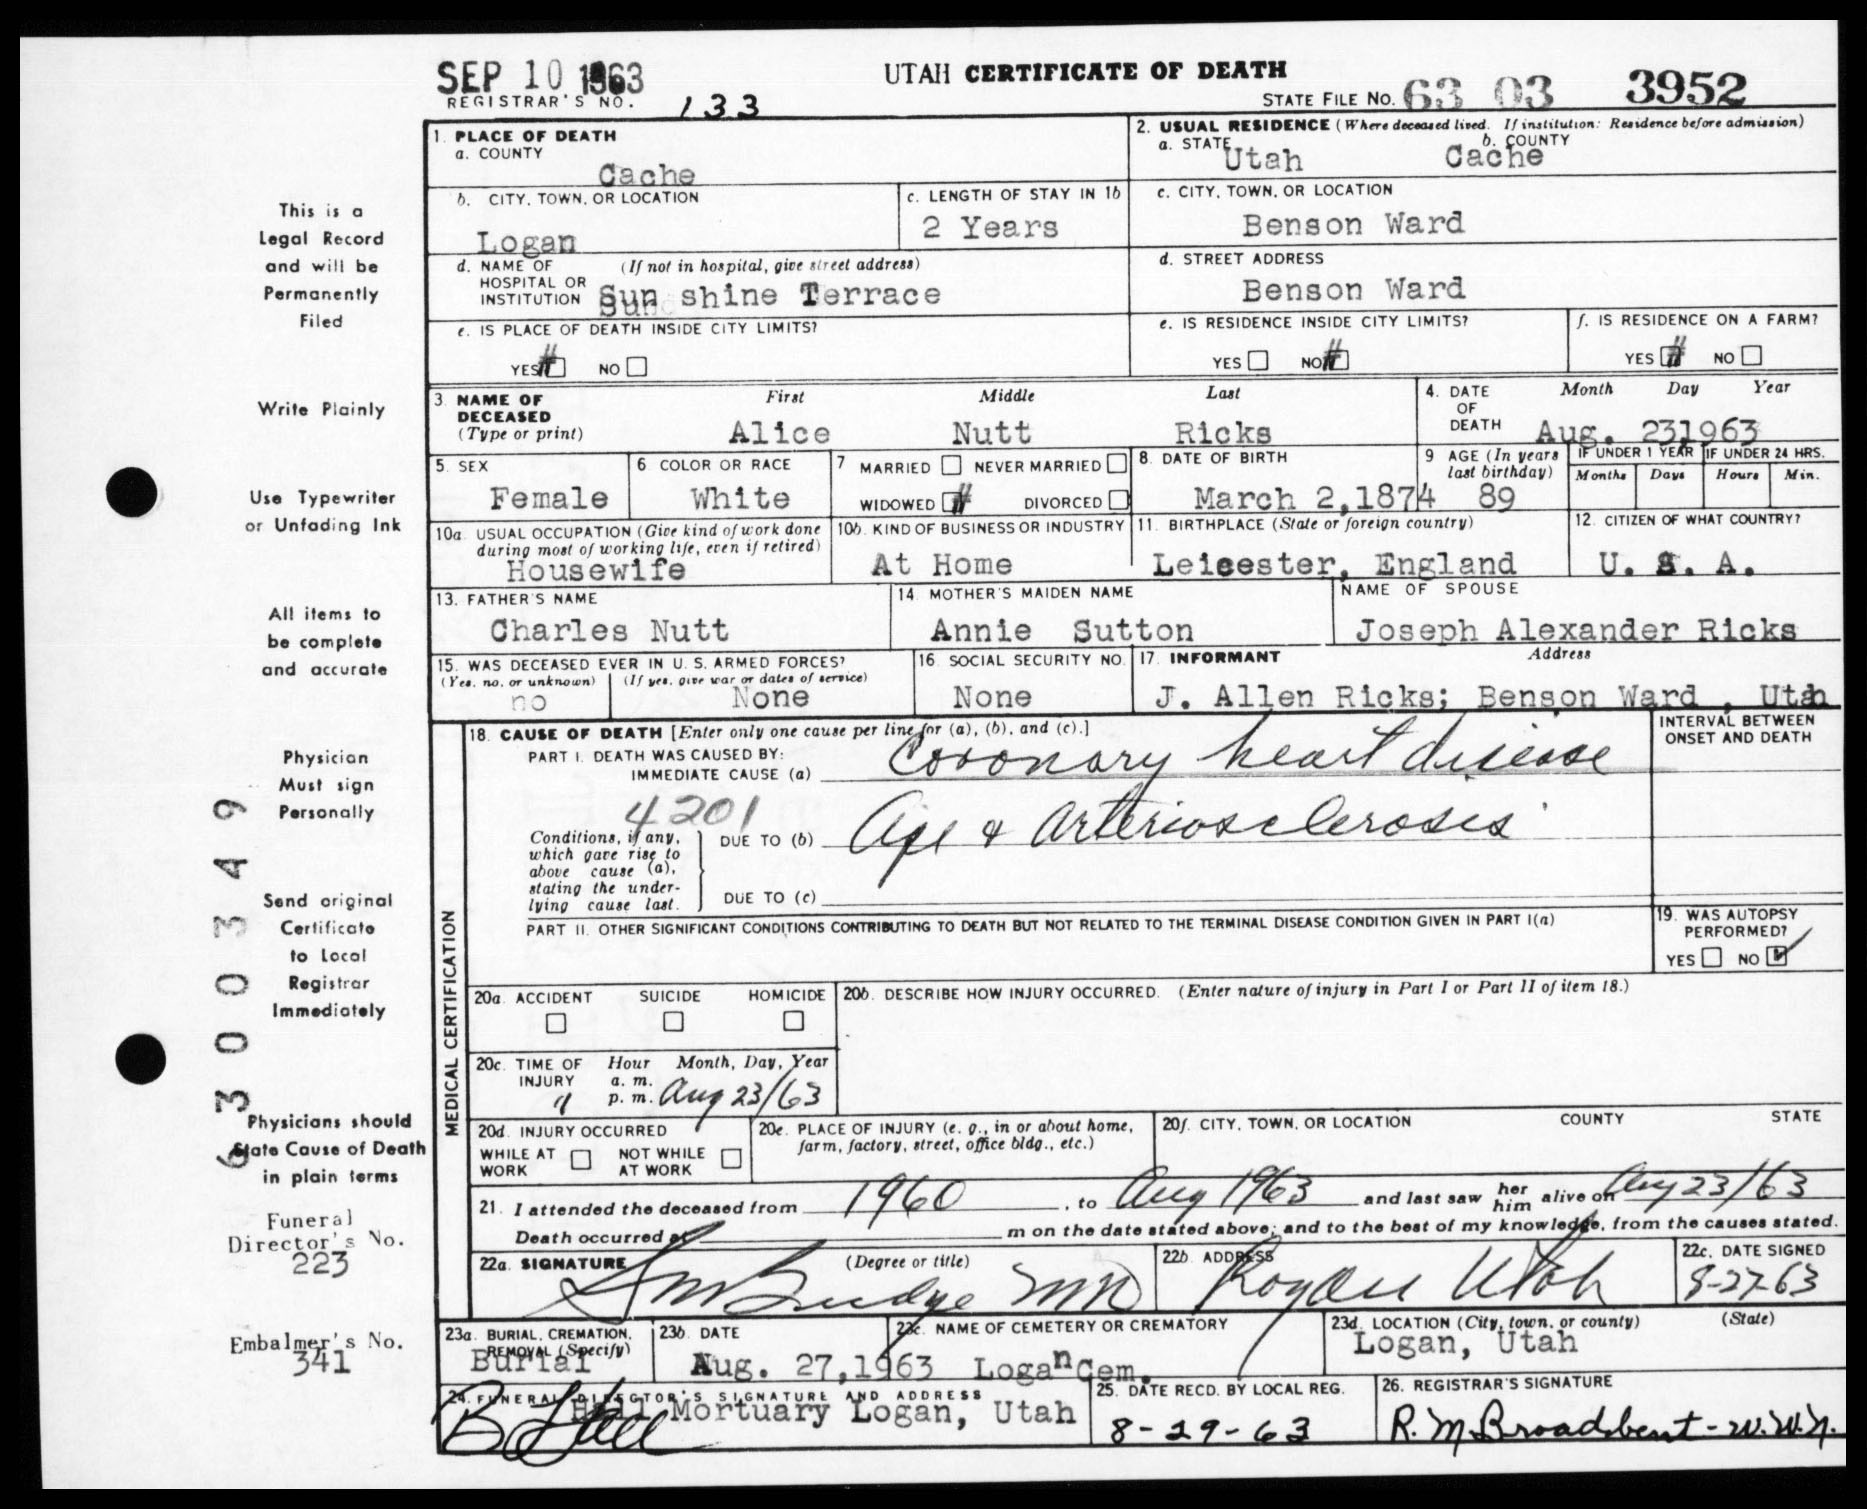 SEP 10 1963
UTAH CERTIFICATE OF DEATH
REGISTRAR'S NO. 133
STATE FILE NO. 63 03 3952
1. PLACE OF DEATH
a. COUNTY
Cache
2. USUAL RESIDENCE (Where deceased lived. If institution: Residence before admission)
a. STATE Utah b. COUNTY Cache
b. CITY, TOWN, OR LOCATION
Logan
c. LENGTH OF STAY IN 1b
2 Years
c. CITY, TOWN, OR LOCATION
Benson Ward
d. NAME OF HOSPITAL OR INSTITUTION (If not in hospital, give street address)
Sun shine Terrace
d. STREET ADDRESS
Benson Ward
e. IS PLACE OF DEATH INSIDE CITY LIMITS?
YES NO
e. IS RESIDENCE INSIDE CITY LIMITS?
YES NO
f. IS RESIDENCE ON A FARM?
YES NO
3. NAME OF DECEASED (Type or print)
First Middle Last
Alice Nutt Ricks
4. DATE OF DEATH
Month Day Year
Aug. 23,1963
5. SEX
Female
6. COLOR OR RACE
White
7 MARRIED NEVER MARRIED
WIDOWED DIVORCED
8. DATE OF BIRTH
March 2,1874
9 AGE (In years last birthday)
89
IF UNDER 1 YEAR
Months Days
IF UNDER 24 HRS.
Hours Min.
10a. USUAL OCCUPATION (Give kind of work done during most of working life, even if retired)
Housewife
10b. KIND OF BUSINESS OR INDUSTRY
At Home
11. BIRTHPLACE (State or foreign country)
Leicester, England
12. CITIZEN OF WHAT COUNTRY?
U. S. A.
13. FATHER'S NAME
Charles Nutt
14. MOTHER'S MAIDEN NAME
Annie Sutton
NAME OF SPOUSE
Joseph Alexander Ricks
15. WAS DECEASED EVER IN U. S. ARMED FORCES?
(Yes, no, or unknown) (If yes, give war or dates of service)
no None
16. SOCIAL SECURITY NO.
None
17. INFORMANT Address
J. Allen Ricks; Benson Ward , Utah
MEDICAL CERTIFICATION
18. CAUSE OF DEATH [Enter only one cause per line for (a), (b), and (c).]
PART I. DEATH WAS CAUSED BY:
IMMEDIATE CAUSE (a) Coronary heart disease
INTERVAL BETWEEN ONSET AND DEATH
4201
Conditions, if any, which gave rise to above cause (a), stating the underlying cause last.
DUE TO (b) Age & arteriosclerosis
DUE TO (c)
PART II. OTHER SIGNIFICANT CONDITIONS CONTRIBUTING TO DEATH BUT NOT RELATED TO THE TERMINAL DISEASE CONDITION GIVEN IN PART I(a)
19. WAS AUTOPSY PERFORMED?
YES NO
20a. ACCIDENT SUICIDE HOMICIDE
20b. DESCRIBE HOW INJURY OCCURRED. (Enter nature of injury in Part I or Part II of item 18.)
20c. TIME OF INJURY
Hour Month, Day, Year
a. m.
p. m. Aug 23/63
20d. INJURY OCCURRED
WHILE AT WORK NOT WHILE AT WORK
20e. PLACE OF INJURY (e. g., in or about home, farm, factory, street, office bldg., etc.)
20f. CITY, TOWN, OR LOCATION COUNTY STATE
21. I attended the deceased from 1960, to Aug 1963 and last saw her him alive on Aug 23/63
Death occurred at m on the date stated above; and to the best of my knowledge, from the causes stated.
22a. SIGNATURE (Degree or title)
Budge MD
22b. ADDRESS
Logan Utah
22c. DATE SIGNED
8-27-63
23a. BURIAL, CREMATION, REMOVAL (Specify)
Burial
23b. DATE
Aug. 27,1963
23c. NAME OF CEMETERY OR CREMATORY
Logan Cem.
23d. LOCATION (City, town, or county) (State)
Logan, Utah
24. FUNERAL DIRECTOR'S SIGNATURE AND ADDRESS
Hall Mortuary Logan, Utah
25. DATE RECD. BY LOCAL REG.
8-29-63
26. REGISTRAR'S SIGNATURE
R. M. Broadbent - W.W.N.
This is a
Legal Record
and will be
Permanently
Filed
Write Plainly
Use Typewriter
or Unfading Ink
All items to
be complete
and accurate
Physician
Must sign
Personally
Send original
Certificate
to Local
Registrar
Immediately
Physicians should
State Cause of Death
in plain terms
Funeral
Director's No.
223
Embalmer's No.
341
6300349